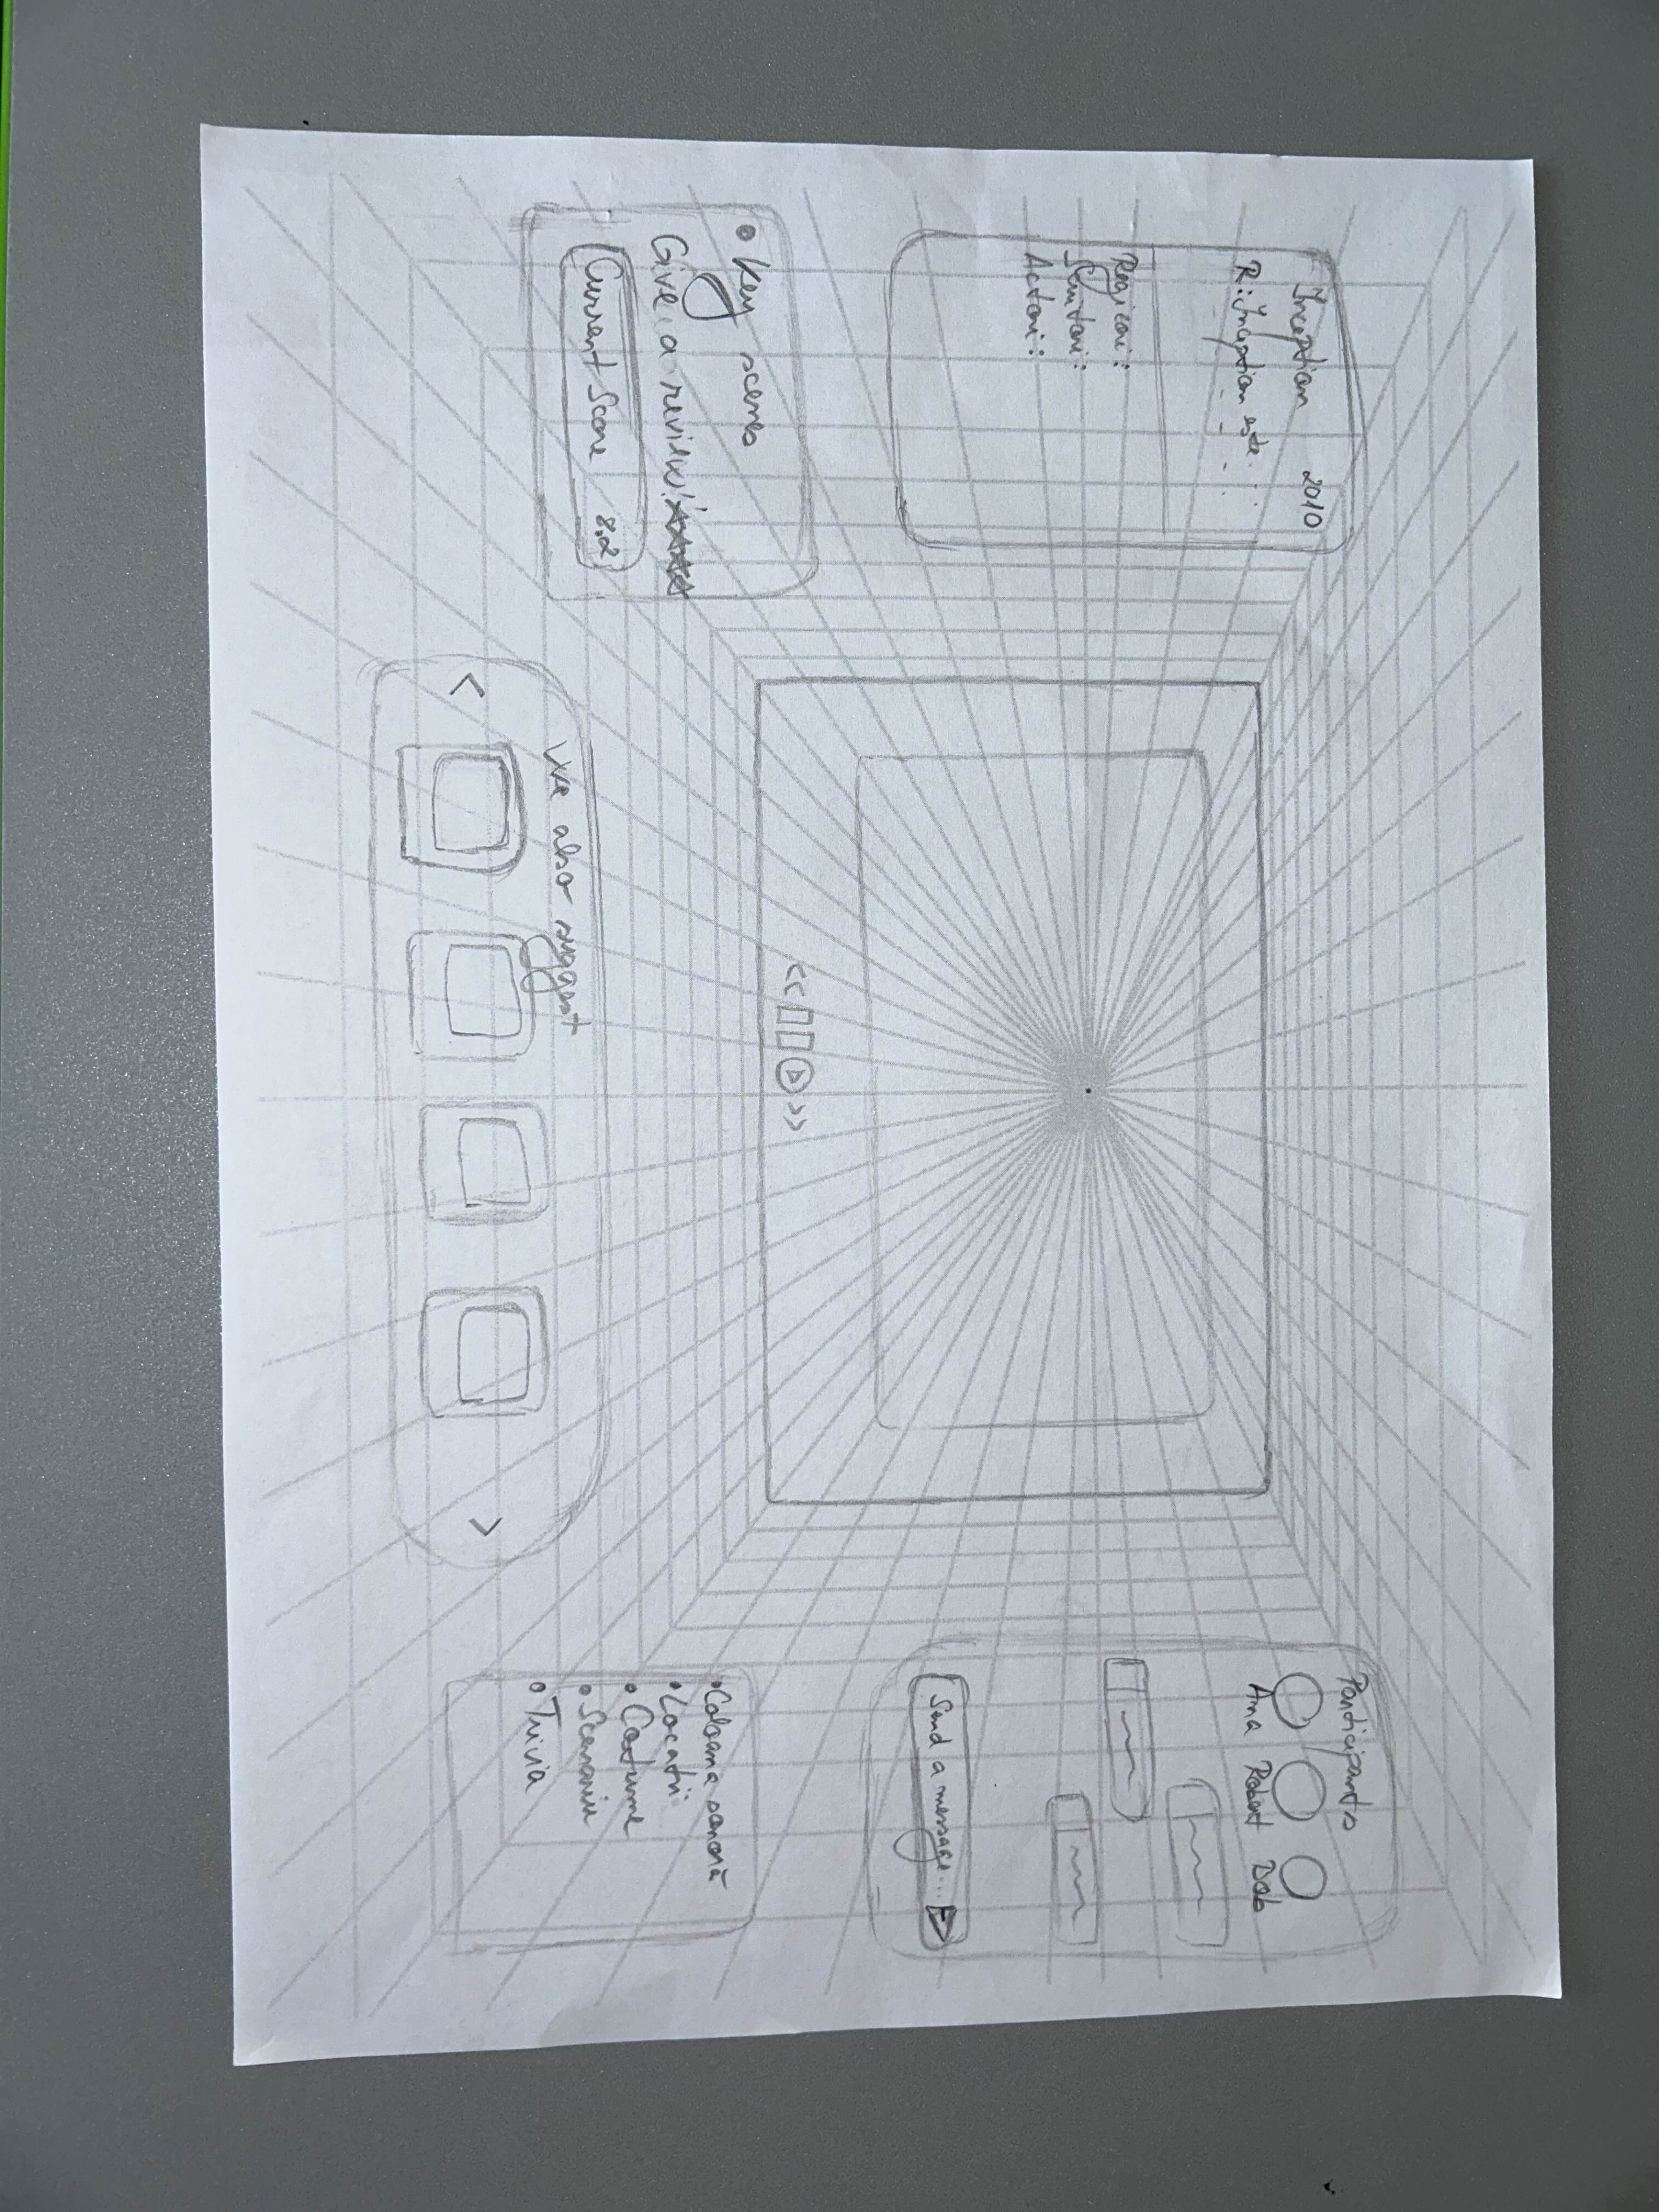 Inception 2010
R: Inception este...
Regizori:
Actori:
• Key scenes
Give a review!
Current Score 8.2
We also suggest
Participants
Ana Robert Bob
Send a message...
• Coloana sonoră
• Locatii
• Costume
• Scenariu
• Trivia